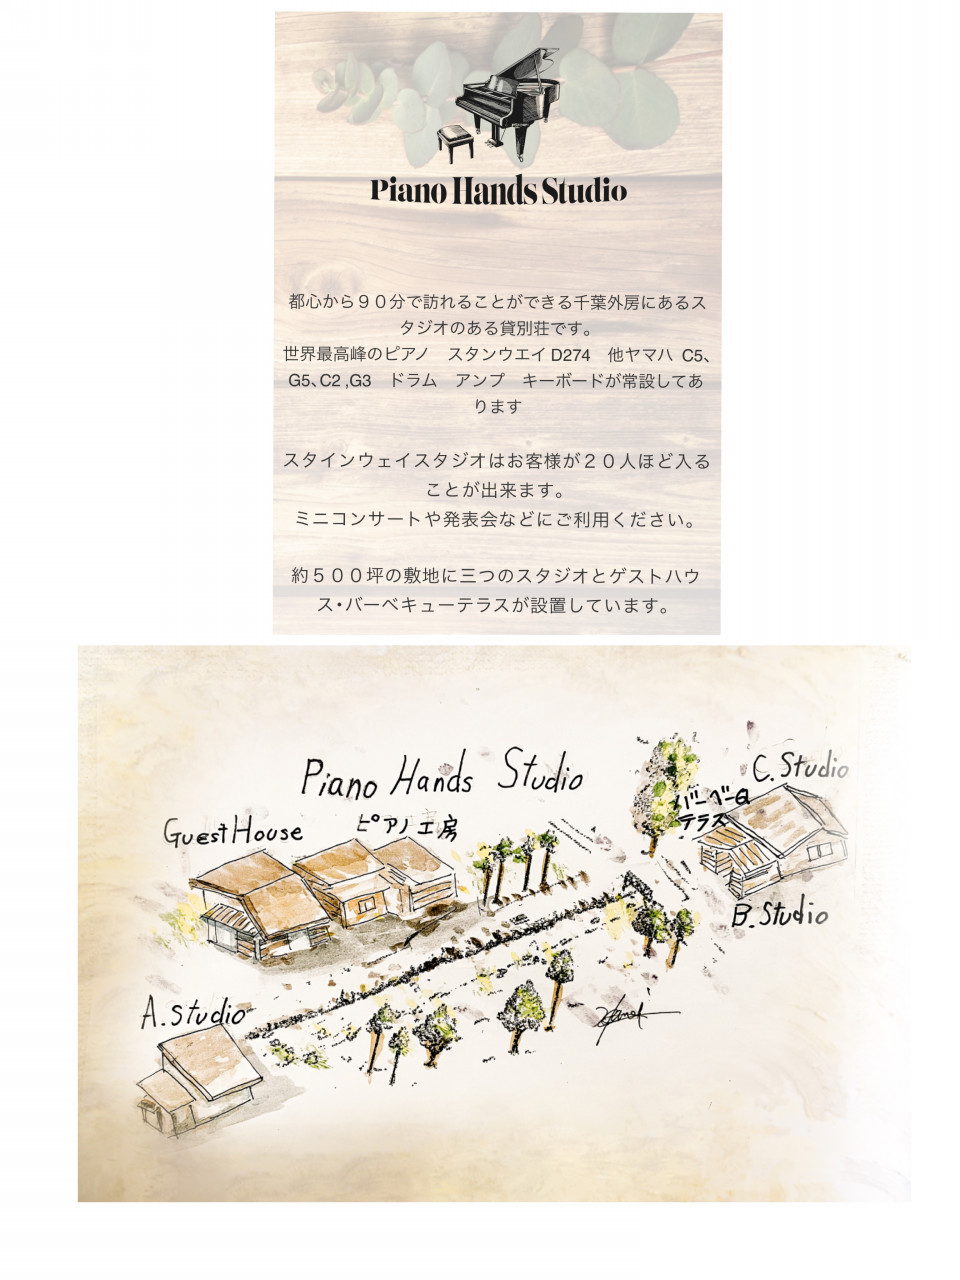 Piano Hands Studio
都心から９０分で訪れることができる千葉外房にあるス
タジオのある貸別荘です。
世界最高峰のピアノ　スタンウエイD274　他ヤマハ C5、
G5、C2 ,G3　ドラム　アンプ　キーボードが常設してあ
ります
スタインウェイスタジオはお客様が２０人ほど入る
ことが出来ます。
ミニコンサートや発表会などにご利用ください。
約５００坪の敷地に三つのスタジオとゲストハウ
ス・バーベキューテラスが設置しています。
Piano Hands Studio
GuestHouse
ピアノ工房
C. Studio
バーベーQ
テラス
B. Studio
A. Studio